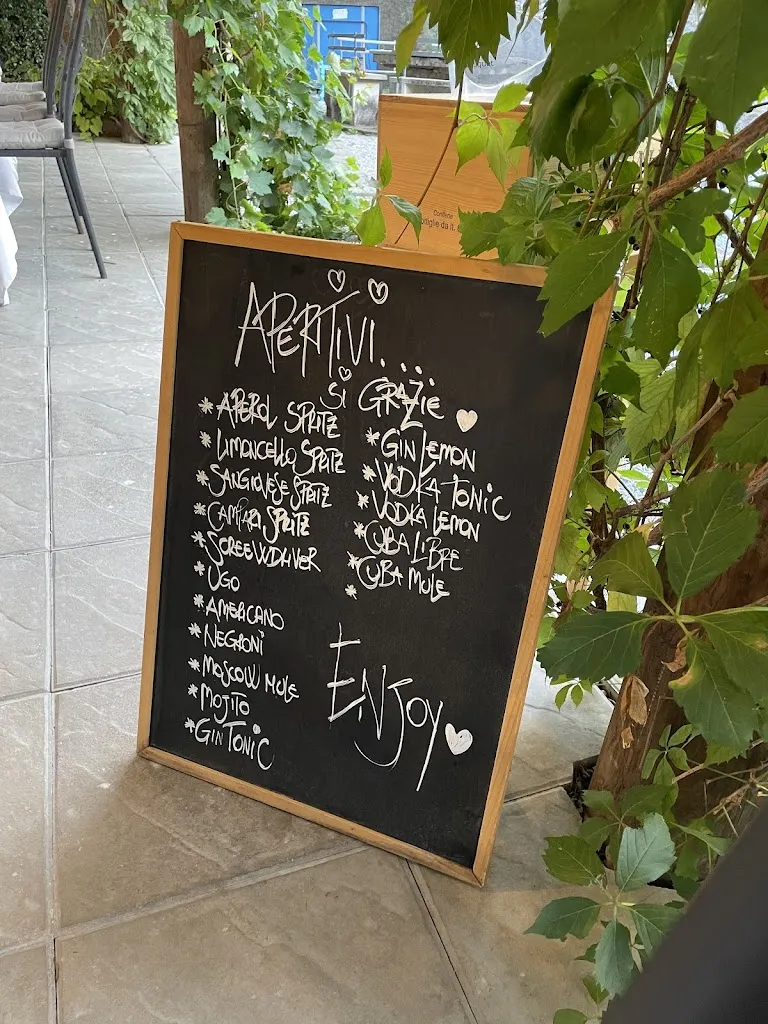 Confine
bottiglie da lt.
APERITIVI...
SI GRAZIE
* APEROL SPRITZ
* LIMONCELLO SPRITZ
* SANGIOVESE SPRITZ
* CAMPARI SPRITZ
* SCREEWDRIVER
* UGO
* AMERICANO
* NEGRONI
* MOSCOW MULE
* MOJITO
* GIN TONIC
* GIN LEMON
* VODKA TONIC
* VODKA LEMON
* CUBA LIBRE
* CUBA MULE
*
ENJOY